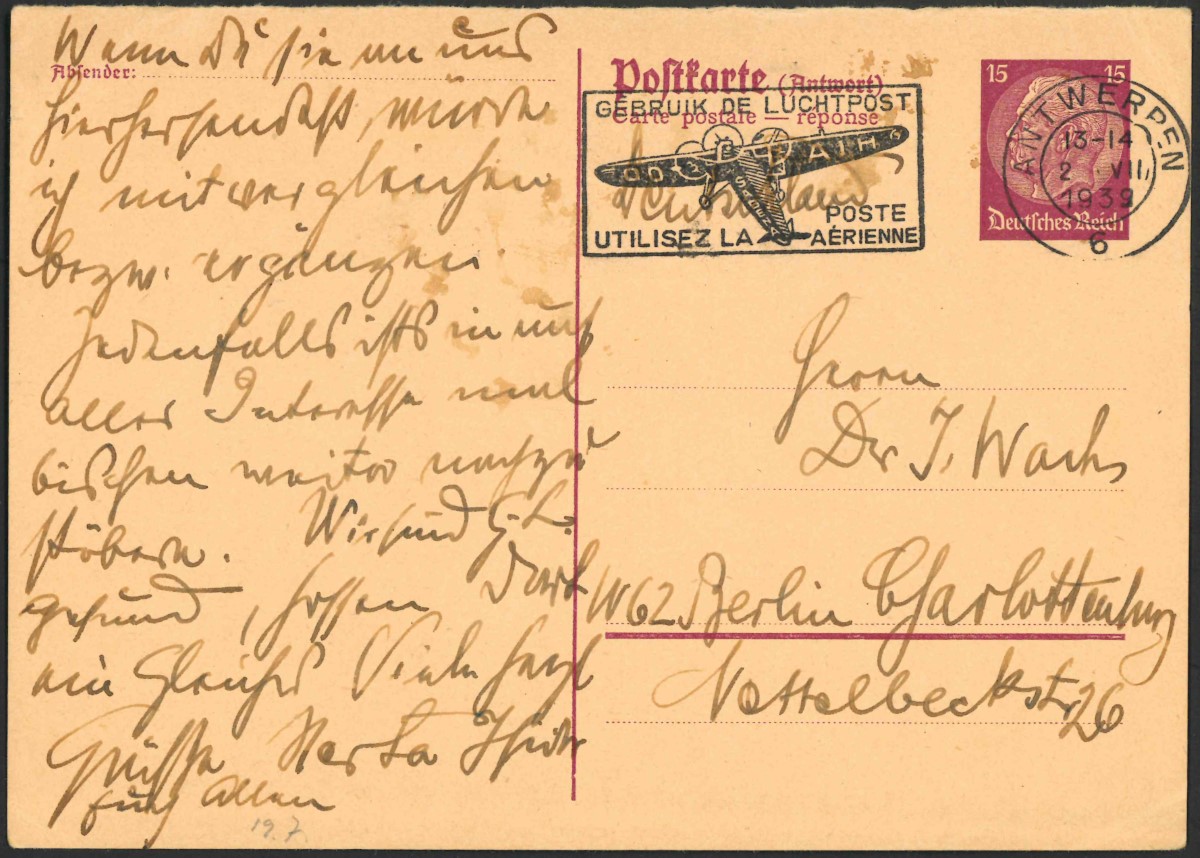 Wenn Du sie an uns
Absender:
hierhersendest würde
ich mit vergleichen
bezw. ergänzen.
Jedenfalls ists in uns
aller Interesse mal
bischen weiter nachzu
stöbern. Wir sind G. L.
gesund, hoffen Dort
ein Gleiches Viele herzl
Grüsse Herta
Euch allen
19.7.
Postkarte (Antwort)
Carte postale — réponse
GEBRUIK DE LUCHTPOST
UTILISEZ LA POSTE AÉRIENNE
Deutschland
15 15
Deutsches Reich
ANTWERPEN
13-14
2 VII
1939
6
Herrn
Dr J. Wachs
W62 Berlin Charlottenburg
Nettelbeckstr 26